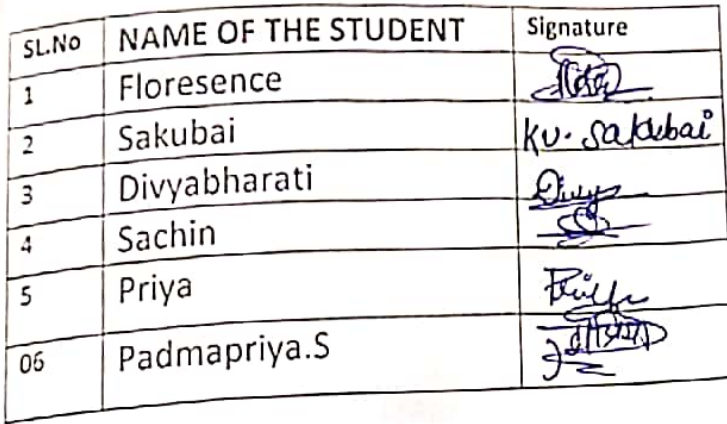 SL.No NAME OF THE STUDENT Signature
1 Floresence
2 Sakubai KU. Sakubai
3 Divyabharati Divya
4 Sachin
5 Priya
06 Padmapriya.S